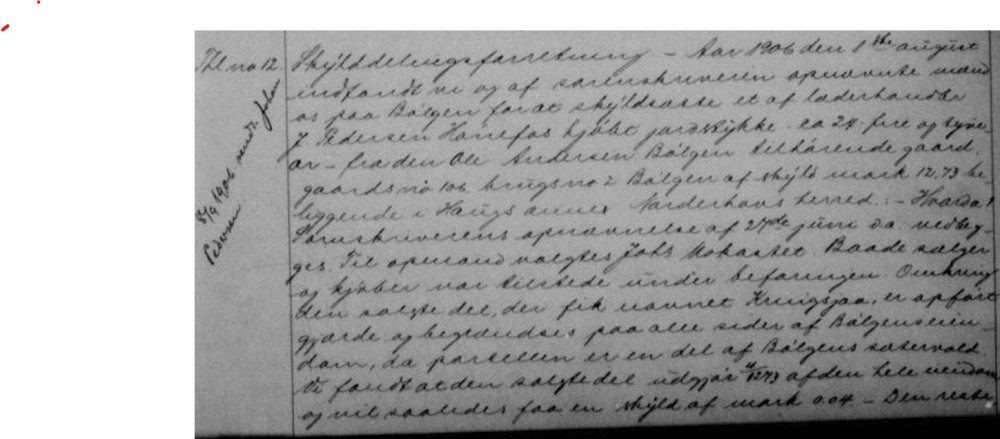 Tbl no 12
8/9 1906. medt. John
Pedersen
Skÿlddelingsforretning. – Aar 1906 den 1ste august
indfandt vi og af sorenskriveren opnævnte mænd
os paa Bølgen for at skÿldsætte et af læderhandler
J. Pedersen Hønefos kjøbt jordstÿkke ca 24 fire og tyve
ar – fra den Ole Andersen Bølgen tilhørende gaard,
gaardsno 106, brugsno 2 Bølgen af skÿld mark 12,73 be-
liggende i Haugs annex Norderhovs herred. –
Sorenskriverens opnævnelse af 27de juni da. vedleg-
ges. Til opmand valgtes Johs Mokastet. Baade sælger
og kjøber var tilstede ünder befaringen. Omkring
den solgte del, der fik navnet Kringsjaa, er opført
gjærde og begrændses paa alle sider af Bølgens eien-
dom, da parsellen er en del af Bølgens sætervold.
Vi fandt at den solgte del üdgjør 4/1273 af den hele eiendom
og vil saaledes faa en skÿld af mark 0.04 – Den reste-